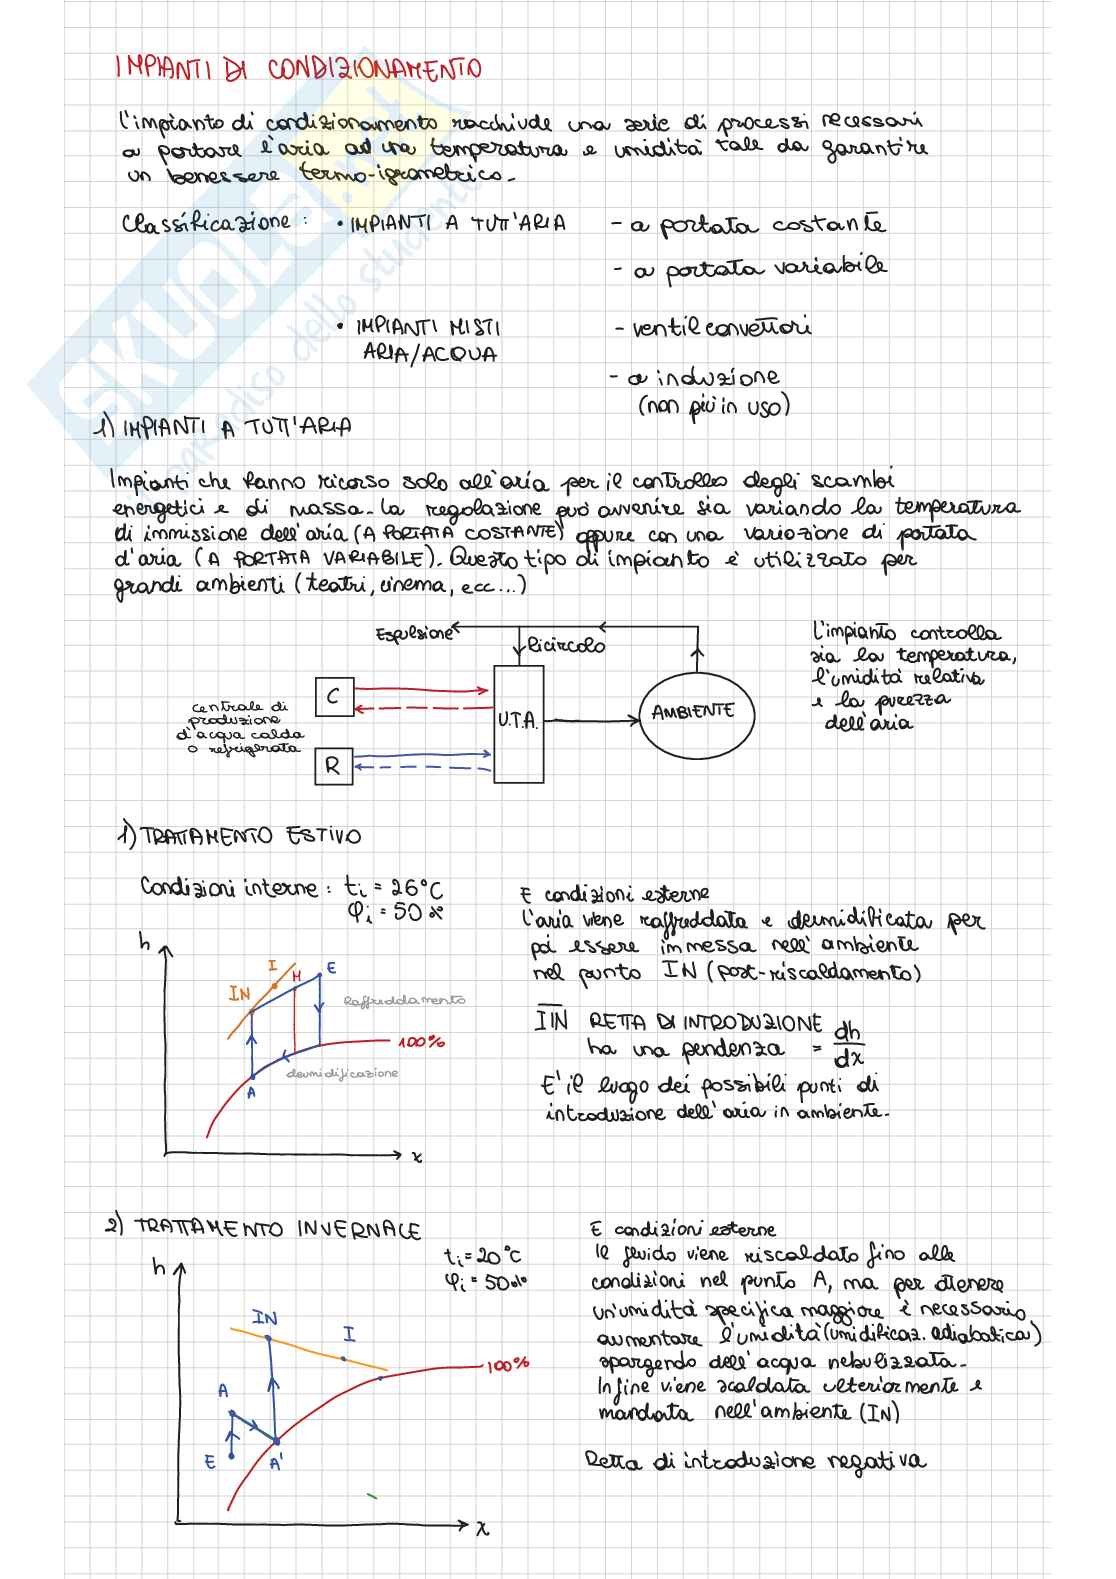 IMPIANTI DI CONDIZIONAMENTO
l'impianto di condizionamento racchiude una serie di processi necessari
a portare l'aria ad una temperatura e umidità tale da garantire
un benessere termo-igrometrico.
Classificazione: • IMPIANTI A TUTT'ARIA - a portata costante
- a portata variabile
• IMPIANTI MISTI - ventilconvettori
ARIA/ACQUA
- a induzione
(non più in uso)
1) IMPIANTI A TUTT'ARIA
Impianti che fanno ricorso solo all'aria per il controllo degli scambi
energetici e di massa. La regolazione può avvenire sia variando la temperatura
di immissione dell'aria (A PORTATA COSTANTE) oppure con una variazione di portata
d'aria (A PORTATA VARIABILE). Questo tipo di impianto è utilizzato per
grandi ambienti (teatri, cinema, ecc...)
Espulsione
Ricircolo
C
U.T.A.
AMBIENTE
R
centrale di
produzione
d'acqua calda
o refrigerata
L'impianto controlla
sia la temperatura,
l'umidità relativa
e la purezza
dell'aria
1) TRATTAMENTO ESTIVO
Condizioni interne: ti = 26°C
φi = 50%
h
IN
I
M
E
Raffreddamento
100%
deumidificazione
A
x
E condizioni esterne
l'aria viene raffreddata e deumidificata per
poi essere immessa nell'ambiente
nel punto IN (post-riscaldamento)
IIN RETTA DI INTRODUZIONE
ha una pendenza = dh/dx
E' il luogo dei possibili punti di
introduzione dell'aria in ambiente.
2) TRATTAMENTO INVERNALE
ti = 20°C
φi = 50%
h
IN
I
100%
A
E
A'
x
E condizioni esterne
Il fluido viene riscaldato fino alle
condizioni nel punto A, ma per ottenere
un'umidità specifica maggiore è necessario
aumentare l'umidità (umidificaz. adiabatica)
spargendo dell'acqua nebulizzata.
Infine viene scaldata ulteriormente e
mandata nell'ambiente (IN)
Retta di introduzione negativa
SKUOLA.net
il paradiso dello studente